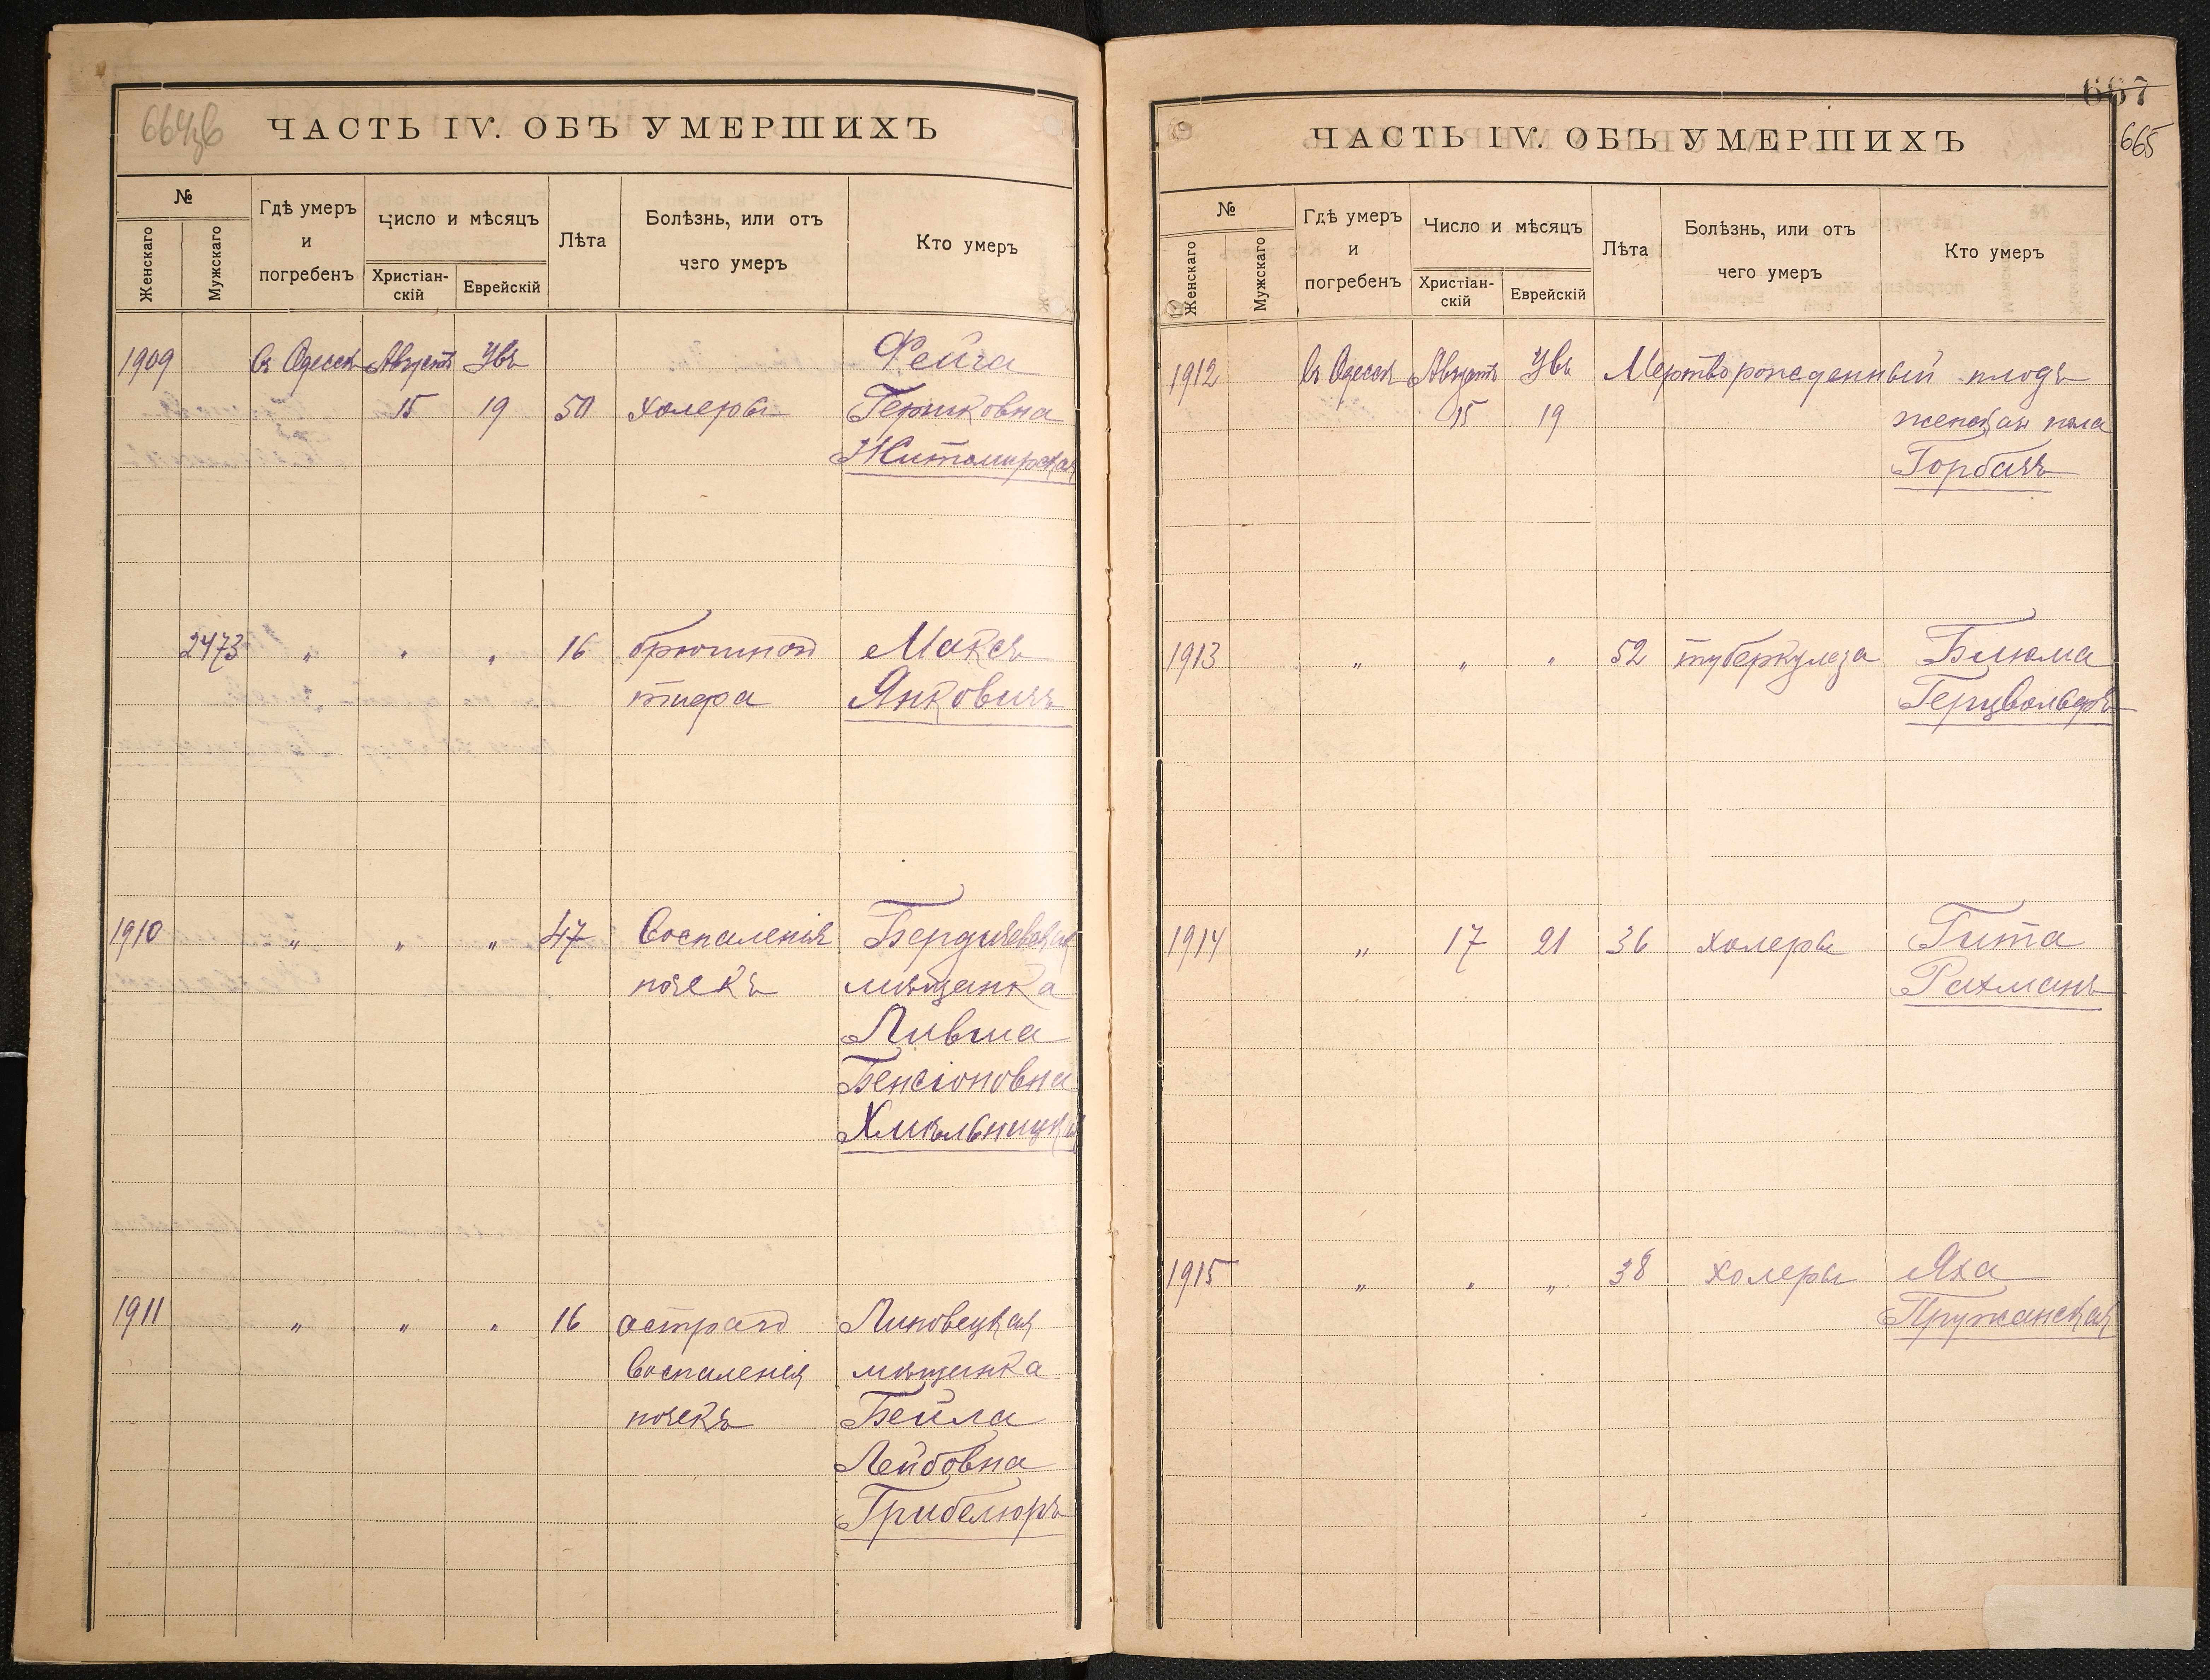 664об
ЧАСТЬ IV. ОБЪ УМЕРШИХЪ
№
Женскаго
Мужскаго
Гдѣ умеръ
и
погребенъ
Число и мѣсяцъ
Христіан-
скій
Еврейскій
Лѣта
Болѣзнь, или отъ
чего умеръ
Кто умеръ
1909 Въ Одессѣ Августъ Увъ Фейга
15 19 50 холеры Гершковна
Житомирская
2473 " " " 16 брюшного Максъ
тифа Янковичъ
1910 " " " 47 Воспаленія Бердичевская
почекъ мѣщанка
Ливша
Бенсіоновна
Хмѣльницкая
1911 " " " 16 остраго Липовецкая
воспаленія мѣщанка
почекъ Бейла
Лейбовна
Грибелюръ
667
665
ЧАСТЬ IV. ОБЪ УМЕРШИХЪ
№
Женскаго
Мужскаго
Гдѣ умеръ
и
погребенъ
Число и мѣсяцъ
Христіан-
скій
Еврейскій
Лѣта
Болѣзнь, или отъ
чего умеръ
Кто умеръ
1912 Въ Одессѣ Августъ Увъ Мертворожденный плодъ
15 19 женскаго пола
Горбачъ
1913 " " " 52 туберкулеза Блюма
Герцвольфъ
1914 " 17 21 36 холеры Гита
Рахманъ
1915 " " " 38 холеры Яха
Пружанская